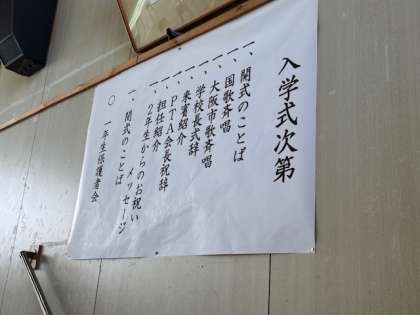 入学式次第
一、開式のことば
一、国歌斉唱
一、大阪市歌斉唱
一、学校長式辞
一、来賓紹介
一、PTA会長祝辞
一、担任紹介
一、2年生からのお祝い
メッセージ
一、閉式のことば
○ 一年生保護者会